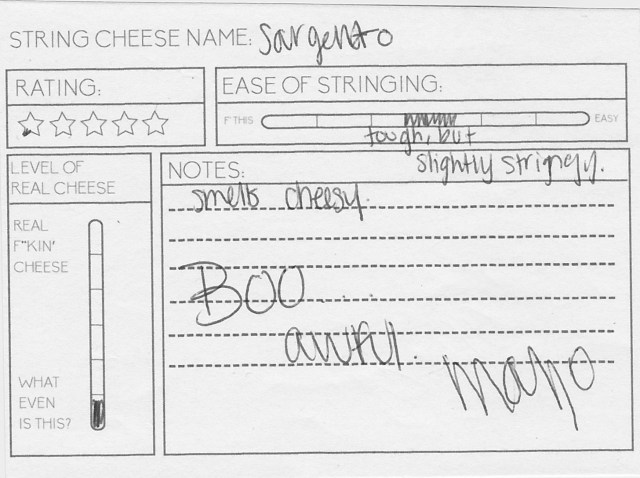 STRING CHEESE NAME: Sargento
RATING:
EASE OF STRINGING:
F THIS
EASY
tough, but
slightly strignejy.
LEVEL OF
REAL CHEESE
REAL
F**KIN'
CHEESE
WHAT
EVEN
IS THIS?
NOTES:
smells cheesy.
BOO....
awful.
mayo